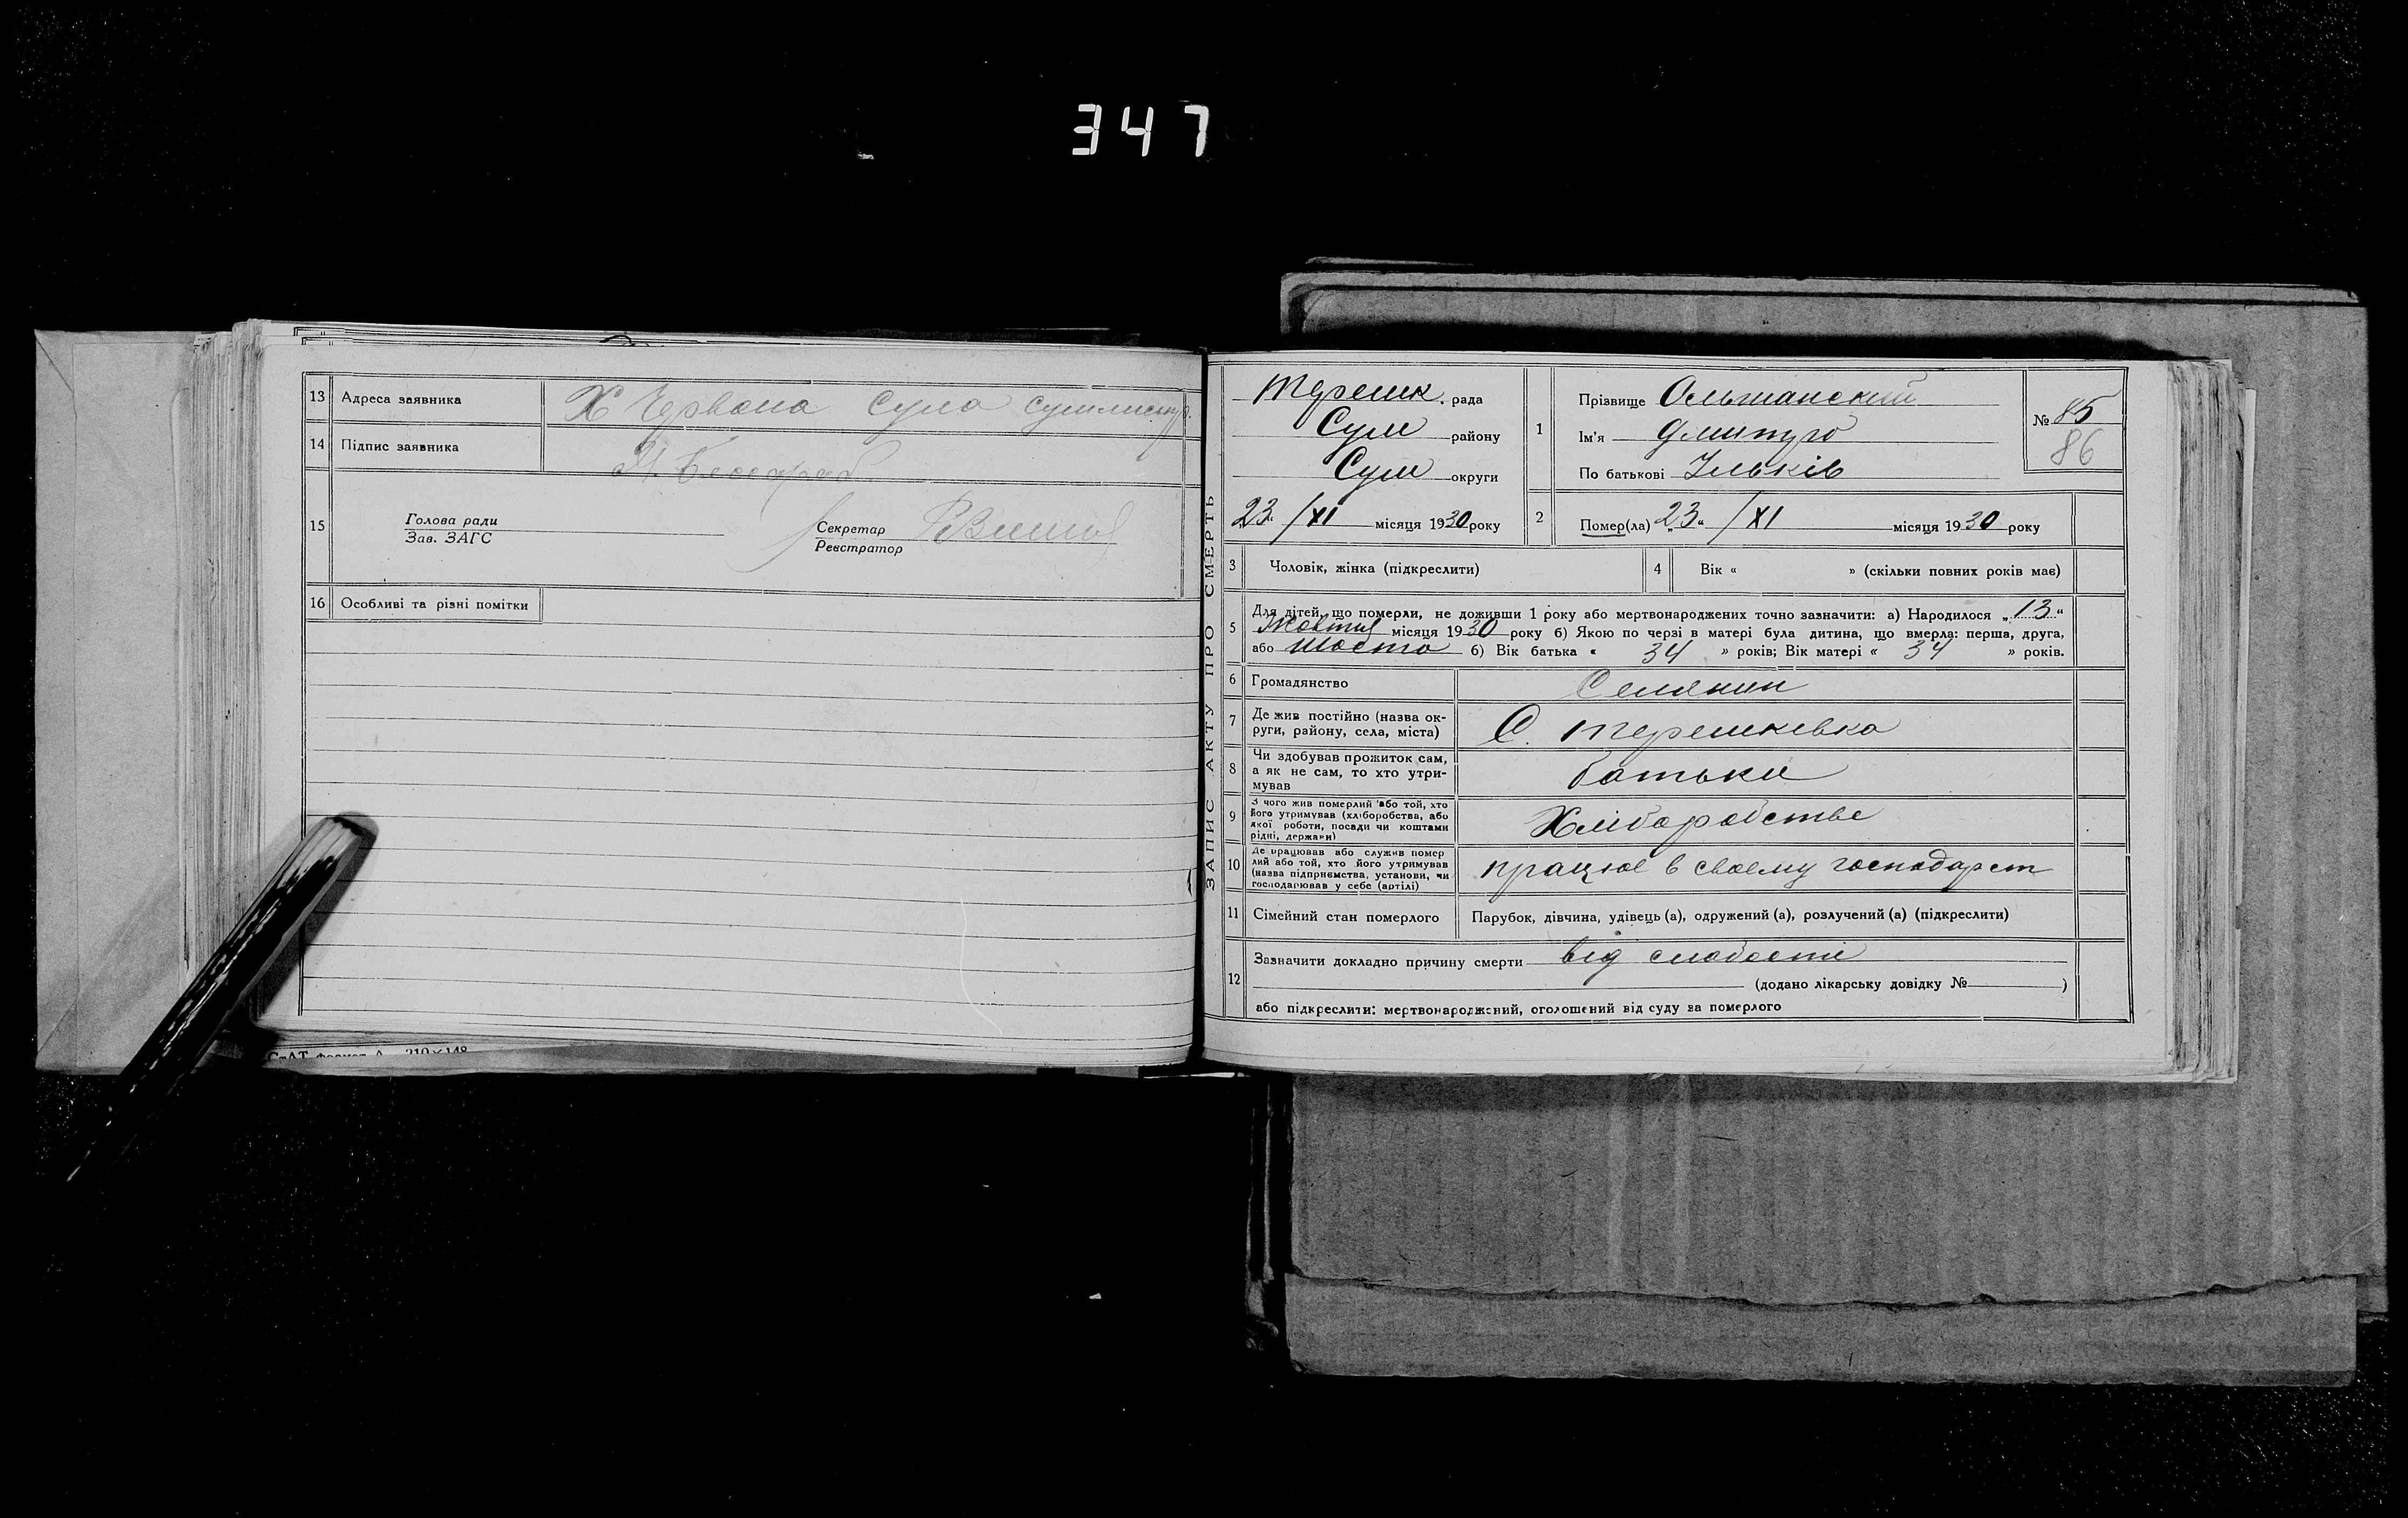 347
13 Адреса заявника Х Червона Сула
14 Підпис заявника
15 Голова ради
Зав. ЗАГС
Секретар
Реєстратор
16 Особливі та різні помітки
210×148
ЗАПИС АКТУ ПРО СМЕРТЬ
Терешк. рада
Сум району
Сум округи
„23“ /XI місяця 1930 року
1 Прізвище Ольшанский
Ім'я Дмитро
По батькові Ільків
№ 85
86
2 Помер(ла) „23“ /XI місяця 1930 року
3 Чоловік, жінка (підкреслити)
4 Вік « » (скільки повних років має)
5 Для дітей, що померли, не доживши 1 року або мертвонароджених точно зазначити: а) Народилося „13“
Жовтня місяця 1930 року б) Якою по черзі в матері була дитина, що вмерла: перша, друга,
або шоста б) Вік батька « 34 » років; Вік матері « 34 » років.
6 Громадянство Селянин
7 Де жив постійно (назва ок-
руги, району, села, міста) С. Терешківка
8 Чи здобував прожиток сам,
а як не сам, то хто утри-
мував батьки
9 З чого жив померлий або той, хто
його утримував (хліборобства, або
якої роботи, посади чи коштами
рідні, держави) Хліборобстве
10 Де працював або служив помер
лий або той, хто його утримував
(назва підприємства, установи, чи
господарював у себе (артілі) працює в своєму господарст
11 Сімейний стан померлого Парубок, дівчина, удівець (а), одружений (а), розлучений (а) (підкреслити)
12 Зазначити докладно причину смерти від слабости
(додано лікарську довідку № )
або підкреслити: мертвонароджений, оголошений від суду за померлого